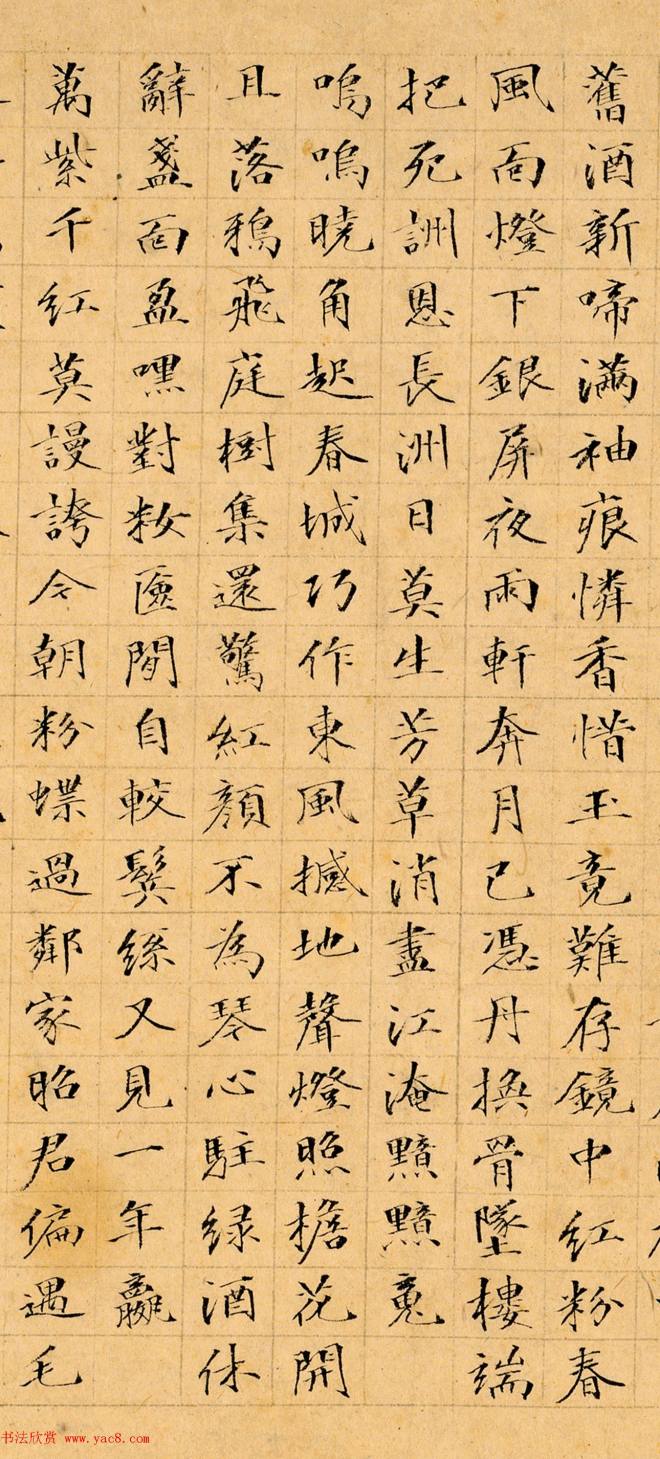 舊酒新啼滿袖痕憐香惜玉竟難存鏡中紅粉春
風面燈下銀屏夜雨軒奔月已憑丹換骨墜樓端
把死詶恩長洲日莫生芳草消盡江淹黯黯䰟
嗚嗚曉角起春城巧作東風撼地聲燈照檐花開
且落鴉飛庭樹集還驚紅顏不為琴心駐緑酒休
辭盞面盈嘿對籹匳閒自較鬢絲又見一年贏
萬紫千紅莫謾誇今朝粉蝶過鄰家昭君偏遇毛
书法欣赏 www.yac8.com